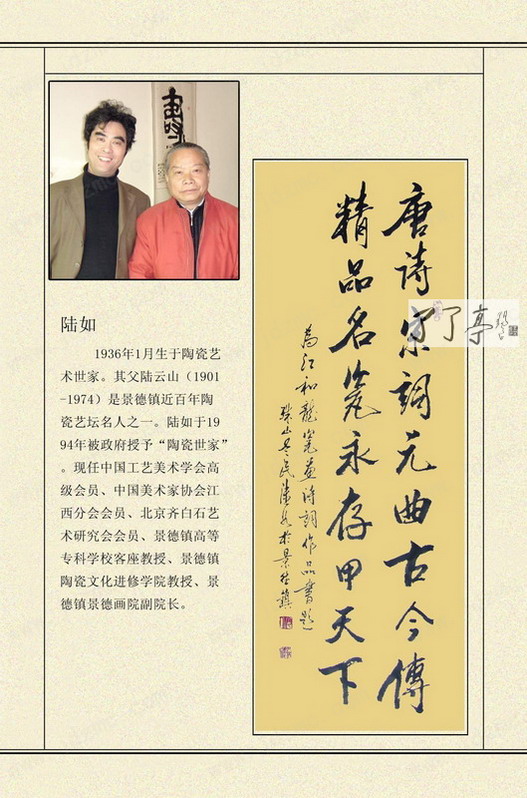 陆如
1936年1月生于陶瓷艺
术世家。其父陆云山（1901
-1974）是景德镇近百年陶
瓷艺坛名人之一。陆如于19
94年被政府授予“陶瓷世家”
。现任中国工艺美术学会高
级会员、中国美术家协会江
西分会会员、北京齐白石艺
术研究会会员、景德镇高等
专科学校客座教授、景德镇
陶瓷文化进修学院教授、景
德镇景德画院副院长。
唐诗宋詞元曲古今傳
精品名瓷永存甲天下
為江和龍瓷画诗詞作品書題
珠山老民陸如於景德鎮
了亭